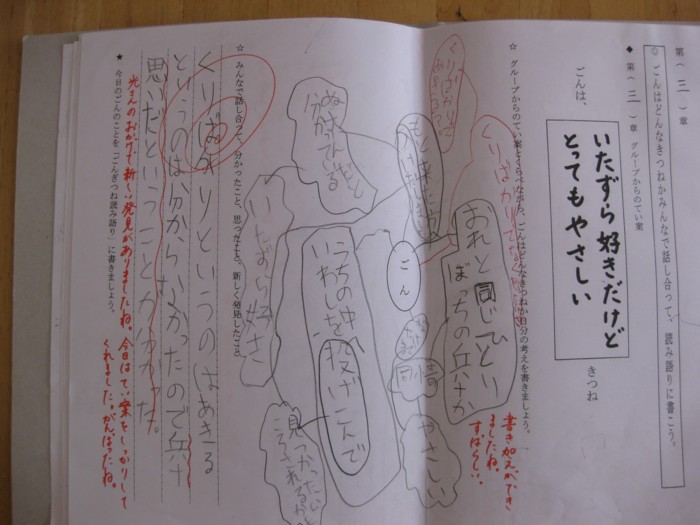 ◎ ごんはどんなきつねかみんなで話し合って、読み語りに書こう。
第（ 三 ）章
◆ 第（ 三 ）章 グループからのてい案
ごんは、
いたずら好きだけど
とってもやさしい
きつね
☆ グループからのてい案とくらべながら、ごんはどんなきつねか自分の考えを書きましょう。
書き加えができ
ましたね。
すばらしい。
くりばかりで
くりばかりでなく
おれと同じひとり
ぼっちの兵十か
ごん
同情
やさしい
うちの中へ
いわしを
投げこんで
見つかったら
いたずら好き
☆ みんなで話し合って、分かったこと、思ったこと、新しく発見したこと
くりばかりというのはあきる
というのは分からなかったので兵十
思いだということが分かった。
★ 今日のごんのことを「ごんぎつね読み語り」に書きましょう。
光さんのおかげで新しい発見がありましたね。今日はてい案をしっかりして
くれました。がんばったね。